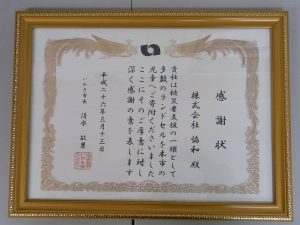 感謝状
株式会社 協和 殿
貴社は被災者支援の一環として
多数のランドセルを本市の
児童へご寄附くださいました
ここにそのご厚意に対し
深く感謝の意を表します
平成二十六年三月十三日
いわき市長 清水 敏男